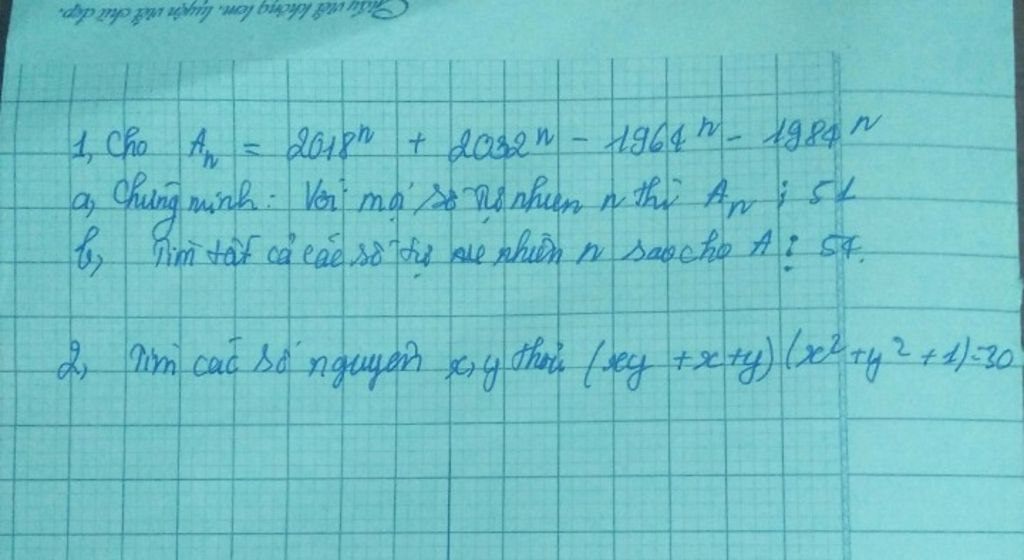 Chữ viết không lem, luyện viết chữ đẹp.
1, Cho Aₙ = 2018ⁿ + 2032ⁿ - 1964ⁿ - 1984ⁿ
a, Chứng minh: Với mọi số tự nhiên n thì Aₙ ⋮ 51
b, Tìm tất cả các số tự nhiên n sao cho A ⋮ 57.
2, Tìm các số nguyên x, y thỏa (xy + x + y)(x² + y² + 1) = 30